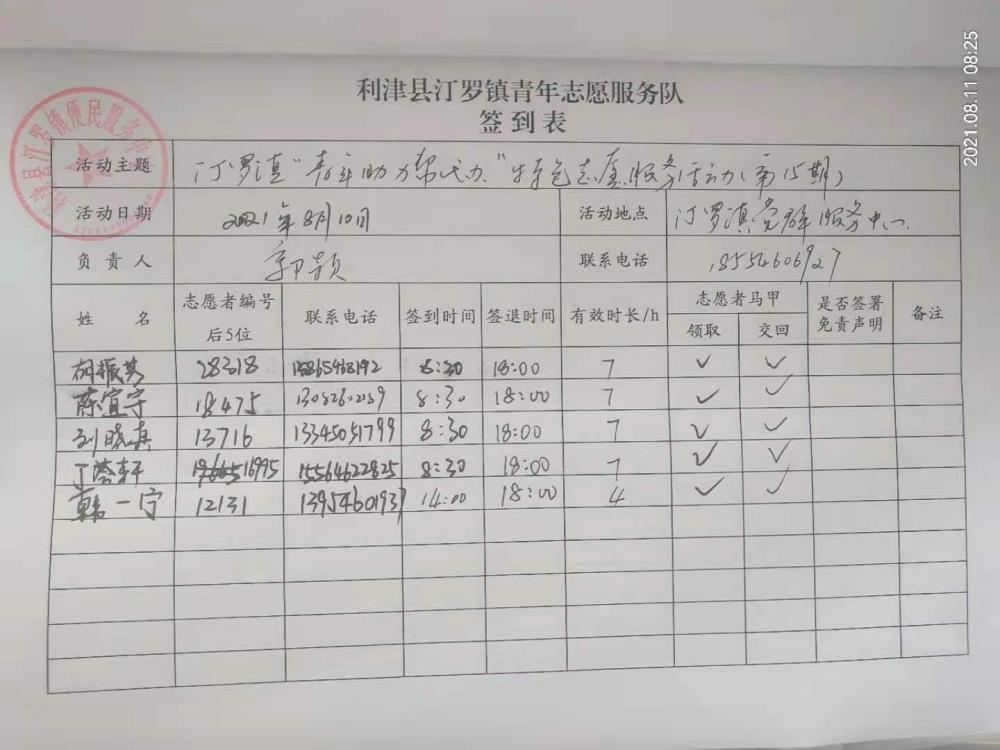 2021.08.11 08:25
利津县汀罗镇青年志愿服务队
签到表
活动主题 汀罗镇“青年助力帮代办”特色志愿服务活动(第15期)
活动日期 2021年8月10日 活动地点 汀罗镇党群服务中心
负责人 郭颖 联系电话 18554606927
姓名 志愿者编号后5位 联系电话 签到时间 签退时间 有效时长/h 志愿者马甲 领取 交回 是否签署免责声明 备注
28318 8:30 18:00 7 ✓ ✓
陈宜宁 18475 8:30 18:00 7 ✓ ✓
刘晓真 13716 13345051799 8:30 18:00 7 ✓ ✓
16995 15564622825 8:30 18:00 7 ✓ ✓
韩一宁 12131 13954601937 14:00 18:00 4 ✓ ✓